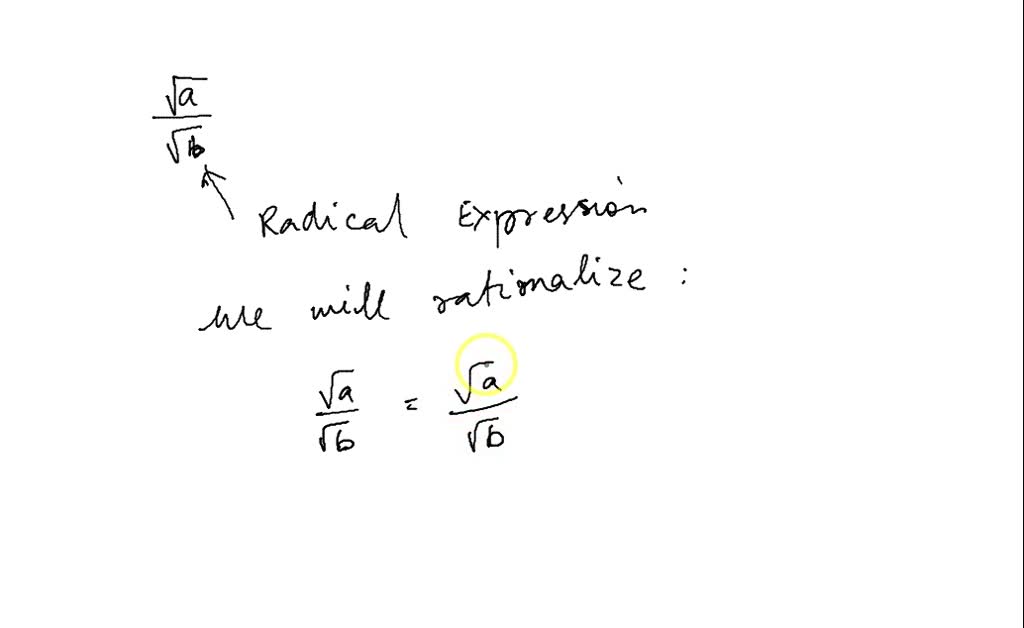 √a/√b
Radical Expression
we will rationalize :
√a/√b = √a/√b